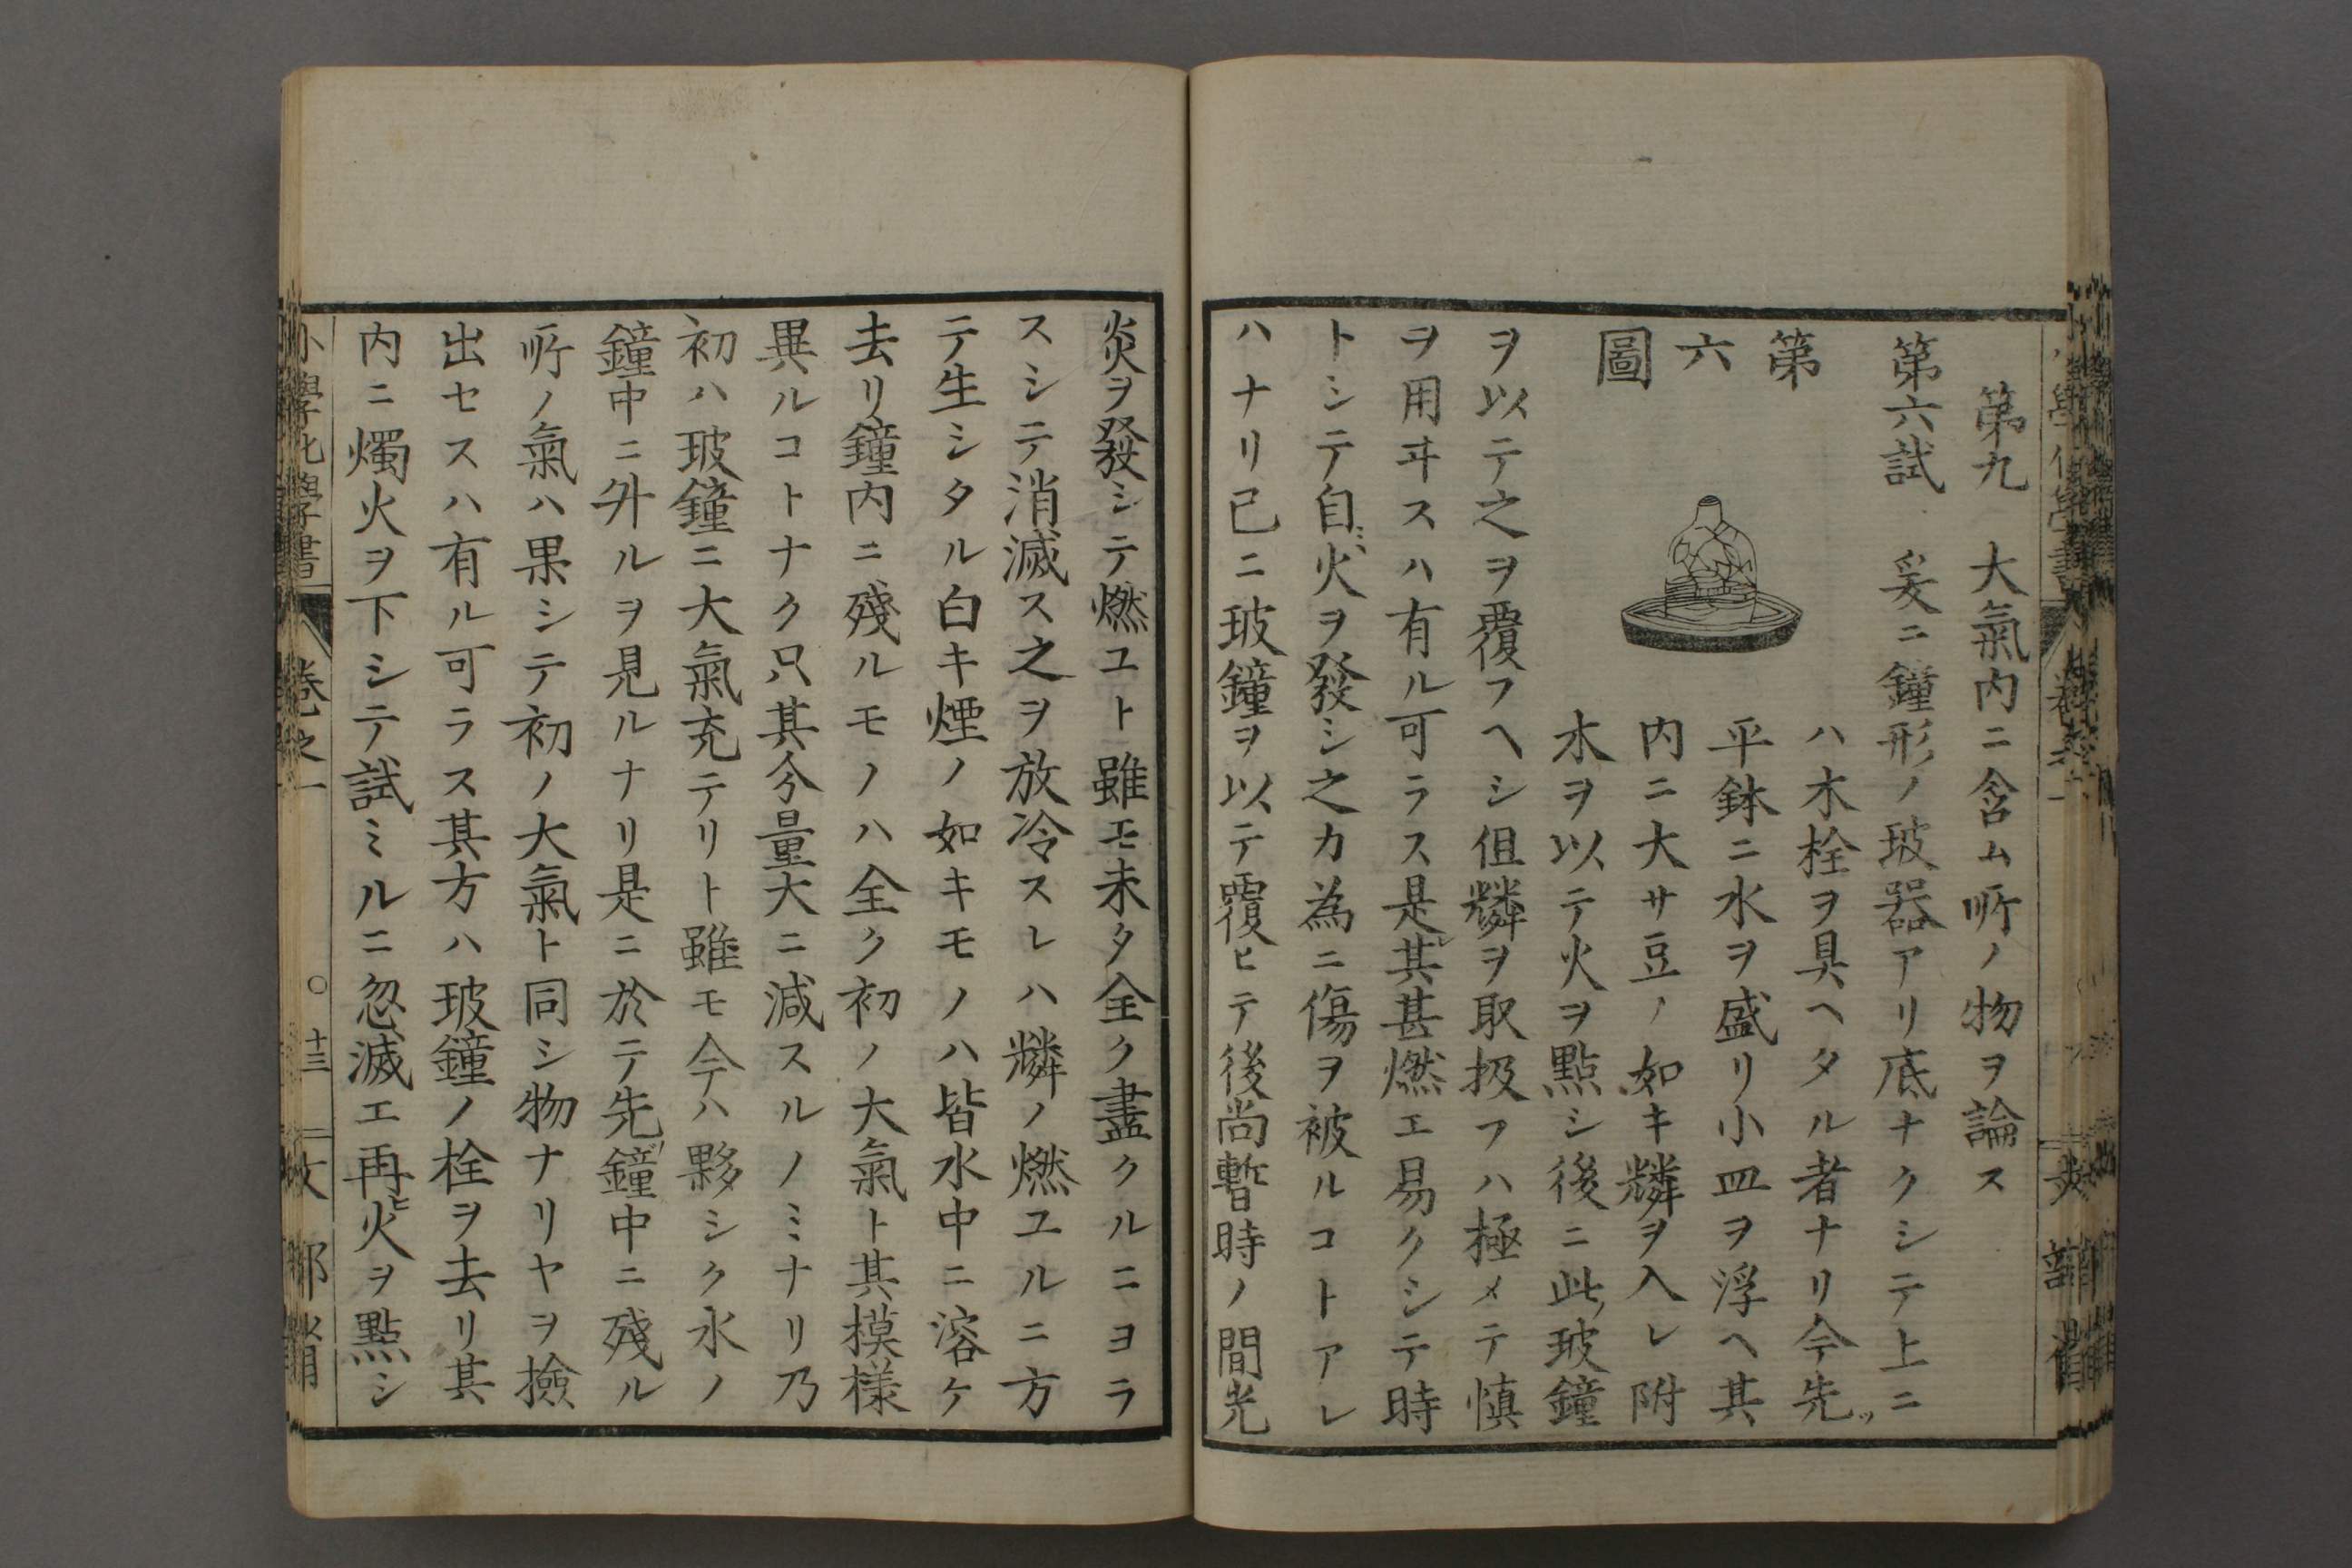 第九 大氣内ニ含ム所ノ物ヲ論ス
第六試 爰ニ鐘形ノ玻器アリ底ナクシテ上ニ
第六圖
ハ木栓ヲ具ヘタル者ナリ今先ツ
平鉢ニ水ヲ盛リ小皿ヲ浮ヘ其
内ニ大サ豆ノ如キ燐ヲ入レ附
木ヲ以テ火ヲ點シ後ニ此ノ玻鐘
ヲ以テ之ヲ覆フヘシ但燐ヲ取扱フハ極メテ慎
ヲ用ヰスハ有ル可ラス是レ其甚燃エ易クシテ時
トシテ自ミ火ヲ發シ之カ為ニ傷ヲ被ルコトアレ
ハナリ已ニ玻鐘ヲ以テ覆ヒテ後尚暫時ノ間光
炎ヲ發シテ燃ユト雖モ未タ全ク盡クルニヨラ
スシテ消滅ス之ヲ放冷スレハ燐ノ燃ユルニ方
テ生シタル白キ煙ノ如キモノハ皆水中ニ溶ケ
去リ鐘内ニ殘ルモノハ全ク初ノ大氣ト其模樣
異ルコトナク只其分量大ニ減スルノミナリ乃
初ハ玻鐘ニ大氣充テリト雖モ今ハ夥シク水ノ
鐘中ニ升ルヲ見ルナリ是ニ於テ先ツ鐘中ニ殘ル
所ノ氣ハ果シテ初ノ大氣ト同シ物ナリヤヲ撿
出セスハ有ル可ラス其方ハ玻鐘ノ栓ヲ去リ其
内ニ燭火ヲ下シテ試ミルニ忽滅エ再ヒ火ヲ點シ
小學化學書 卷之一 ○十三 文部省